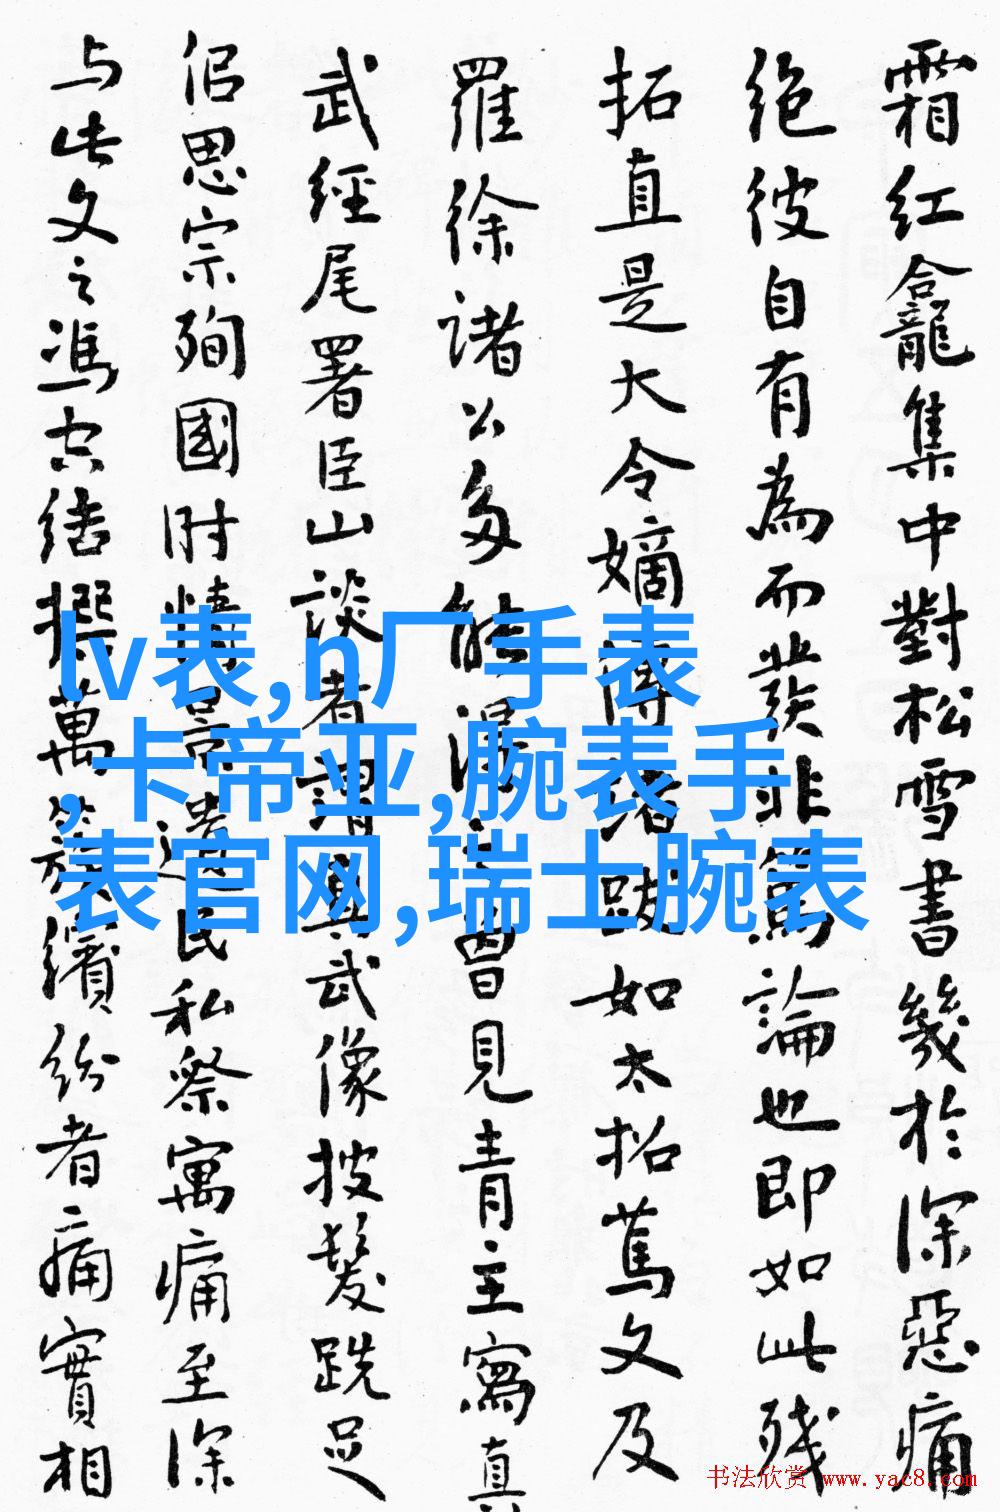 霜红龛集中對松雪書幾於深惡痛
绝彼自有為而發非篤論也即如此残
拓直是大令嫡傳绪跋如太招篤文及
羅徐諸公多能混
曾見青主寫真
武經尾署臣山談者謂真武像披髮跣足
侣思宗殉國时情
民私祭寓痛至深
与此文之馮
撰萬
繽纷者痛實相
lv表,n厂手表
,卡帝亚,腕表手
表官网,瑞士腕表
书法欣赏 www.yac8.com